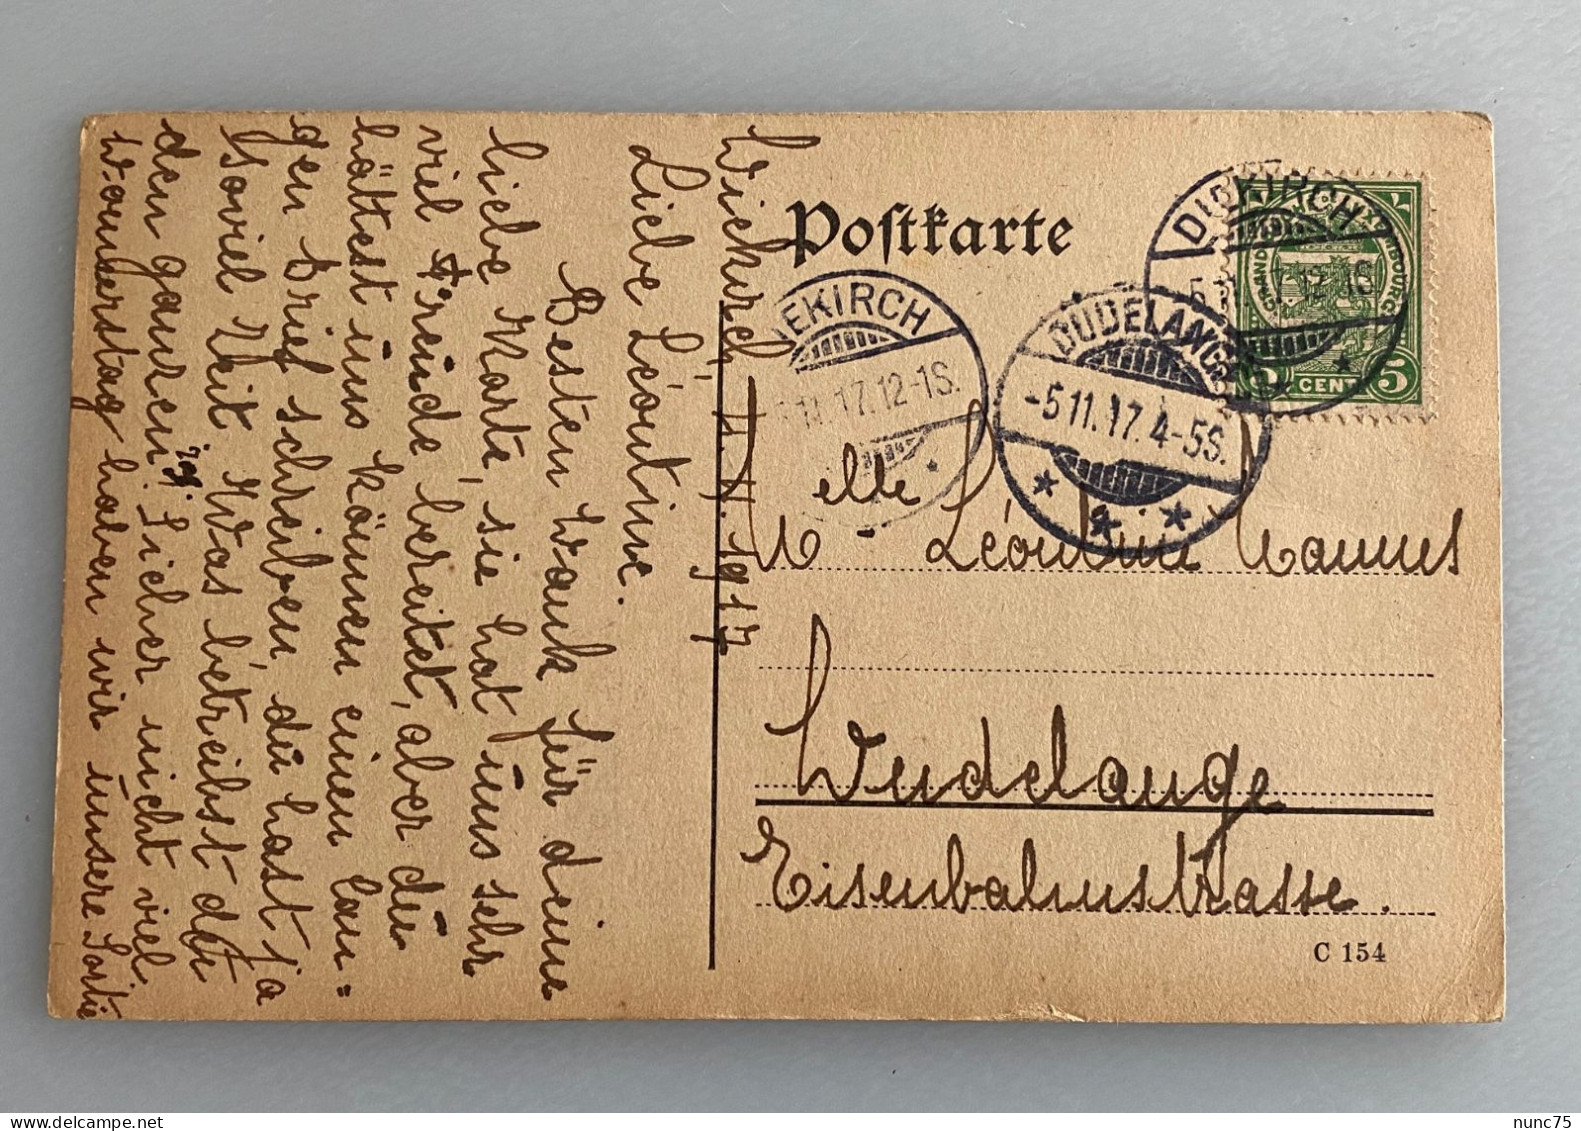 Postkarte
DIEKIRCH
5.11.17.12-1S.
GRAND
LUXEMBOURG
5 CENT 5
DIEKIRCH
5.11.17.12-1S.
DUDELANGE
-5.11.17.4-5S.
Melle Léontine Hannes
Dudelange
Eisenbahnstrasse.
C 154
Diekirch, 4.11.1917
Liebe Léontine.
Besten Dank für deine
liebe Karte, sie hat uns sehr
viel Freude bereitet, aber du
hättest uns können einen lan=
gen Brief schreiben du hast ja
soviel Zeit. Was betreibst du
den ganzen Tag. Sicher nicht viel.
Donnerstag haben wir unsere Sortie
nunc75